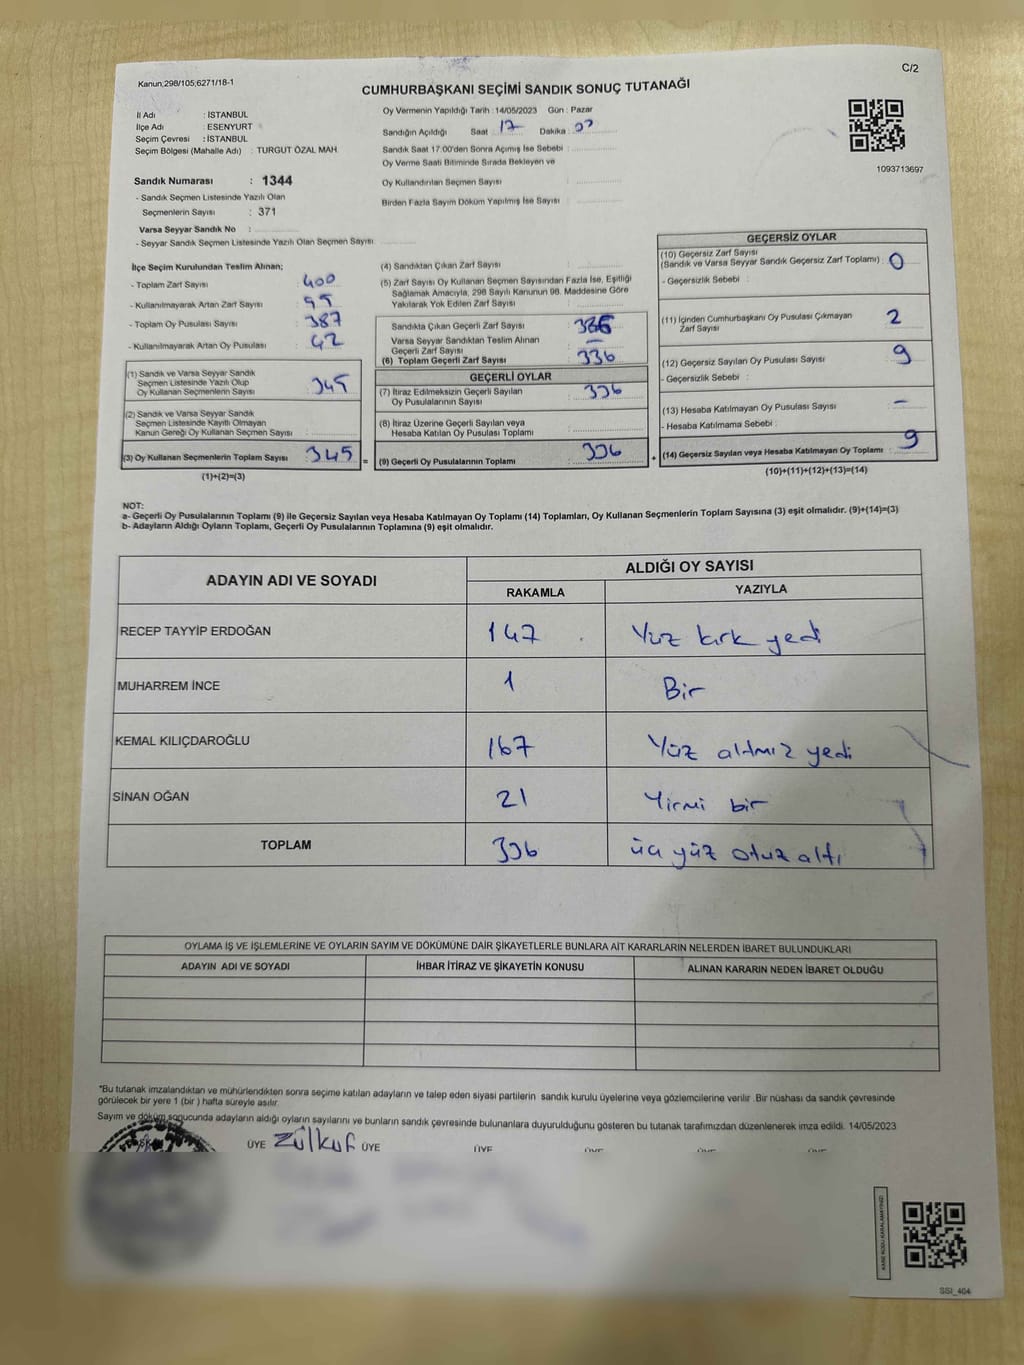 Kanun,298/105,6271/18-1
C/2
CUMHURBAŞKANI SEÇİMİ SANDIK SONUÇ TUTANAĞI
İl Adı : İSTANBUL
İlçe Adı : ESENYURT
Seçim Çevresi : İSTANBUL
Seçim Bölgesi (Mahalle Adı) : TURGUT ÖZAL MAH.
Oy Vermenin Yapıldığı Tarih : 14/05/2023 Gün : Pazar
Sandığın Açıldığı Saat : 17 Dakika :
Sandık Saat 17:00'den Sonra Açımış İse Sebebi :
Oy Verme Saati Bitiminde Sırada Bekleyen ve
Oy Kullandırılan Seçmen Sayısı :
Birden Fazla Sayım Döküm Yapılmış İse Sayısı :
1093713697
Sandık Numarası : 1344
- Sandık Seçmen Listesinde Yazılı Olan
Seçmenlerin Sayısı : 371
Varsa Seyyar Sandık No :
- Seyyar Sandık Seçmen Listesinde Yazılı Olan Seçmen Sayısı :
İlçe Seçim Kurulundan Teslim Alınan;
- Toplam Zarf Sayısı : 400
- Kullanılmayarak Artan Zarf Sayısı :
- Toplam Oy Pusulası Sayısı : 387
- Kullanılmayarak Artan Oy Pusulası : 42
(1) Sandık ve Varsa Seyyar Sandık
Seçmen Listesinde Yazılı Olup
Oy Kullanan Seçmenlerin Sayısı : 345
(2) Sandık ve Varsa Seyyar Sandık
Seçmen Listesinde Kayıtlı Olmayan
Kanun Gereği Oy Kullanan Seçmen Sayısı :
(3) Oy Kullanan Seçmenlerin Toplam Sayısı : 345
(1)+(2)=(3)
(4) Sandıktan Çıkan Zarf Sayısı :
(5) Zarf Sayısı Oy Kullanan Seçmen Sayısından Fazla İse, Eşitliği
Sağlamak Amacıyla, 298 Sayılı Kanunun 98. Maddesine Göre
Yakılarak Yok Edilen Zarf Sayısı :
Sandıkta Çıkan Geçerli Zarf Sayısı : 336
Varsa Seyyar Sandıktan Teslim Alınan
Geçerli Zarf Sayısı : –
(6) Toplam Geçerli Zarf Sayısı : 336
GEÇERLİ OYLAR
(7) İtiraz Edilmeksizin Geçerli Sayılan
Oy Pusulalarının Sayısı : 336
(8) İtiraz Üzerine Geçerli Sayılan veya
Hesaba Katılan Oy Pusulası Toplamı :
= (9) Geçerli Oy Pusulalarının Toplamı : 336
GEÇERSİZ OYLAR
(10) Geçersiz Zarf Sayısı
(Sandık ve Varsa Seyyar Sandık Geçersiz Zarf Toplamı) : 0
- Geçersizlik Sebebi :
(11) İçinden Cumhurbaşkanı Oy Pusulası Çıkmayan
Zarf Sayısı : 2
(12) Geçersiz Sayılan Oy Pusulası Sayısı : 9
- Geçersizlik Sebebi :
(13) Hesaba Katılmayan Oy Pusulası Sayısı : –
- Hesaba Katılmama Sebebi :
+ (14) Geçersiz Sayılan veya Hesaba Katılmayan Oy Toplamı : 9
(10)+(11)+(12)+(13)=(14)
NOT:
a- Geçerli Oy Pusulalarının Toplamı (9) ile Geçersiz Sayılan veya Hesaba Katılmayan Oy Toplamı (14) Toplamları, Oy Kullanan Seçmenlerin Toplam Sayısına (3) eşit olmalıdır. (9)+(14)=(3)
b- Adayların Aldığı Oyların Toplamı, Geçerli Oy Pusulalarının Toplamına (9) eşit olmalıdır.
ADAYIN ADI VE SOYADI
ALDIĞI OY SAYISI
RAKAMLA YAZIYLA
RECEP TAYYİP ERDOĞAN 147 Yüz kırk yedi
MUHARREM İNCE 1 Bir
KEMAL KILIÇDAROĞLU 167 Yüz altmız yedi
SİNAN OĞAN 21 Yirmi bir
TOPLAM 336 üç yüz otuz altı
OYLAMA İŞ VE İŞLEMLERİNE VE OYLARIN SAYIM VE DÖKÜMÜNE DAİR ŞİKAYETLERLE BUNLARA AİT KARARLARIN NELERDEN İBARET BULUNDUKLARI
ADAYIN ADI VE SOYADI İHBAR İTİRAZ VE ŞİKAYETİN KONUSU ALINAN KARARIN NEDEN İBARET OLDUĞU
*Bu tutanak imzalandıktan ve mühürlendikten sonra seçime katılan adayların ve talep eden siyasi partilerin sandık kurulu üyelerine veya gözlemcilerine verilir .Bir nüshası da sandık çevresinde
görülecek bir yere 1 (bir ) hafta süreyle asılır.
Sayım ve döküm sonucunda adayların aldığı oyların sayılarını ve bunların sandık çevresinde bulunanlara duyurulduğunu gösteren bu tutanak tarafımızdan düzenlenerek imza edildi. 14/05/2023
ÜYE Zülkuf ÜYE ÜYE
KARE KODU KARALAMAYINIZ!
SSI_404